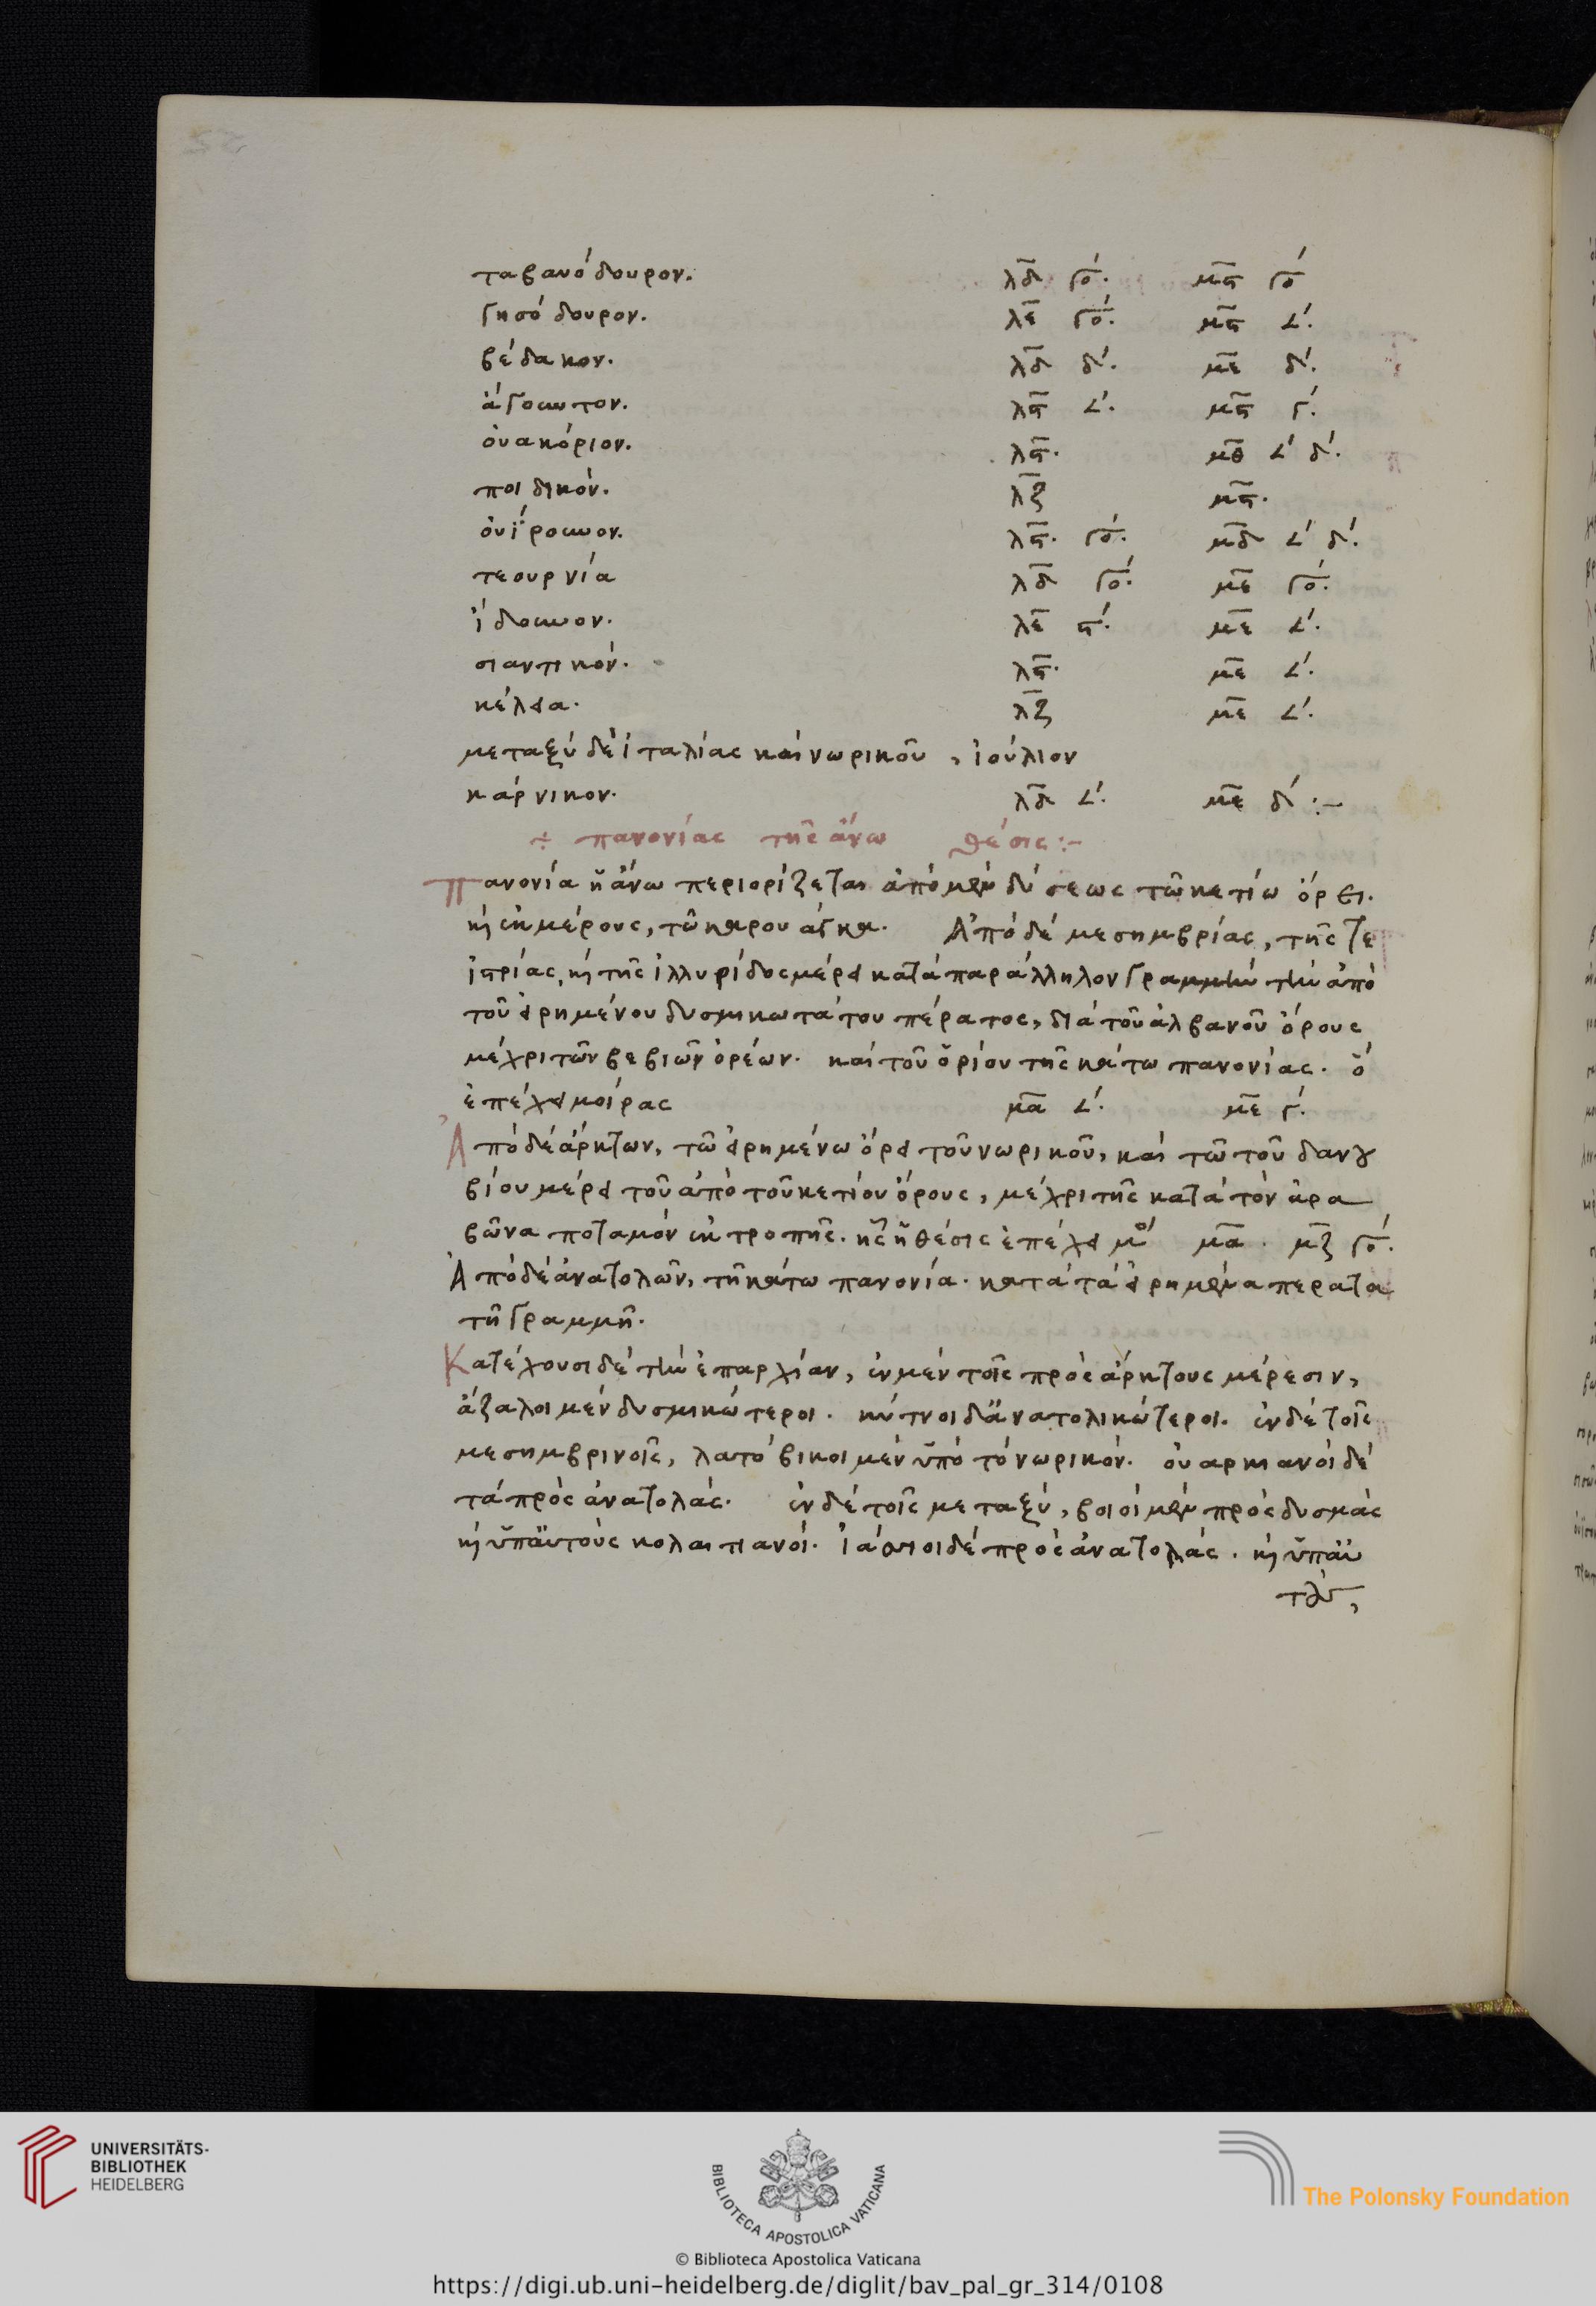 ταβανόδουρον. λδ γο. μϛ γο
γησόδουρον. λε γο. μϛ 𐅵.
βέδακον. λδ δ. με δ.
ἀγουντον. λϛ 𐅵. μϛ γ.
ὀυακόριον. λϛ. μθ 𐅵 δ.
ποιδικόν. λζ μϛ.
ὀυίρουνον. λϛ. γο. μδ 𐅵 δ.
τεουρνία λδ γο. με γο.
ἴδουνον. λε ϛ. με 𐅵.
σιαντικόν. λϛ. με 𐅵.
κέλεια. λζ με 𐅵.
μεταξύ δὲ ἰταλίας καὶ νωρικοῦ, ἰούλιον
κάρνικον. λδ 𐅵. με δ :-
+ πανονίας τῆς ἄνω θέσις :-
Πανονία ἡ ἄνω περιορίζεται ἀπό μὲν δύσεως τῶ κετίω ὄρει.
κὶ ἐκ μέρους, τῶ καρουάγκα. Ἀπό δέ μεσημβρίας, τῆς τε
ἰστρίας, κὶ τῆς ἰλλυρίδος μέρει κατά παράλληλον γραμμήν τὴν ἀπό
τοῦ εἰρημένου δυσμικωτάτου πέρατος, διά τοῦ ἀλβανοῦ ὄρους
μέχρι τῶν βεβιῶν ὀρέων. καί τοῦ ὁρίου τῆς κάτω πανονίας. ὅ
ἐπέχει μοίρας μα 𐅵. με γ.
Ἀπό δέ ἄρκτων, τῶ εἰρημένω ὄρει τοῦ νωρικοῦ, καί τῶ τοῦ δανου
βίου μέρει τοῦ ἀπό τοῦ κετίου ὄρους, μέχρι τῆς κατά τόν ἀρα
βῶνα ποταμόν ἐκτροπῆς. ἧς ἡ θέσις ἐπέχει μο μα. μζ γο.
Ἀπό δέ ἀνατολῶν, τῆ κάτω πανονία. κατά τά εἰρημένα περατα
τῆ γραμμῆ.
Κατέχουσι δέ τὴν ἐπαρχίαν, ἐν μέν τοῖς πρὸς ἄρκτους μέρεσιν,
ἄζαλοι μέν δυσμικώτεροι. κύτνοι δ' ἀνατολικώτεροι. ἐν δέ τοῖς
μεσημβρινοῖς, λατόβικοι μέν ὑπό τό νωρικόν. ὀυαρκιανοί δέ
τά πρὸς ἀνατολάς. ἐν δέ τοῖς μεταξύ, βοιοί μέν πρὸς δυσμάς
κὶ ὑπ' αὐτούς κολαιτιανοί. ἰάσσιοι δέ πρὸς ἀνατολάς. κὶ ὑπ' αὐ
τούς,
UNIVERSITÄTS-
BIBLIOTHEK
HEIDELBERG
BIBLIOTECA APOSTOLICA VATICANA
The Polonsky Foundation
© Biblioteca Apostolica Vaticana
https://digi.ub.uni-heidelberg.de/diglit/bav_pal_gr_314/0108